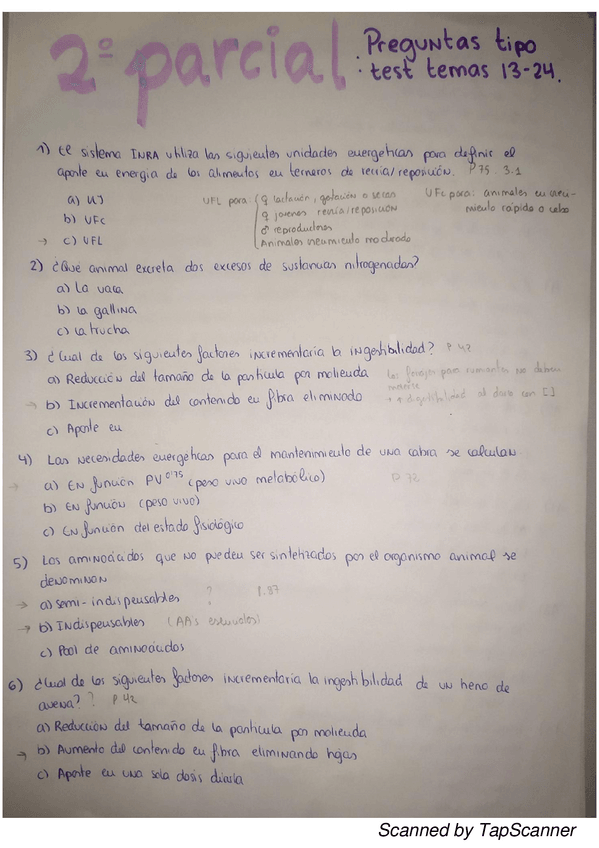 2º parcial : Preguntas tipo
test temas 13-24.
1) El sistema INRA utiliza las siguientes unidades energeticas para definir el
aporte en energia de los alimentos en terneros de recria/reposición. P 75 3.1
a) UJ
b) UFc
→ c) UFL
UFL para: ♀ lactación, gestación o secas
♀ jovenes recria/reposición
♂ reproductores
Animales crecimiento moderado
UFc para: animales en creci-
miento rápido o cebo
2) ¿Qué animal excreta dos excesos de sustancias nitrogenadas?
a) La vaca
b) La gallina
c) La trucha
3) ¿Cual de los siguientes factores incrementaria la ingestibilidad? P 42
a) Reducción del tamaño de la particula por molienda
→ b) Incrementación del contenido en fibra eliminado
c) Aporte en
Los forrajes para rumiantes no deben
molerse
↑ digestibilidad al darlo con []
4) Las necesidades energeticas para el mantenimiento de una cabra se calculan
→ a) EN función PV^0'75 (peso vivo metabólico) P 72
b) EN función (peso vivo)
c) EN función del estado fisiológico
5) Los aminoácidos que no pueden ser sintetizados por el organismo animal se
denominan
→ a) semi-indispensables ? P.87
→ b) Indispensables (AA's esenciales)
c) Pool de aminoácidos
6) ¿Cual de los siguientes factores incrementaria la ingestibilidad de un heno de
avena? ? P 42
a) Reducción del tamaño de la particula por molienda
→ b) Aumento del contenido en fibra eliminando hojas
c) Aporte en una sola dosis diaria
Scanned by TapScanner